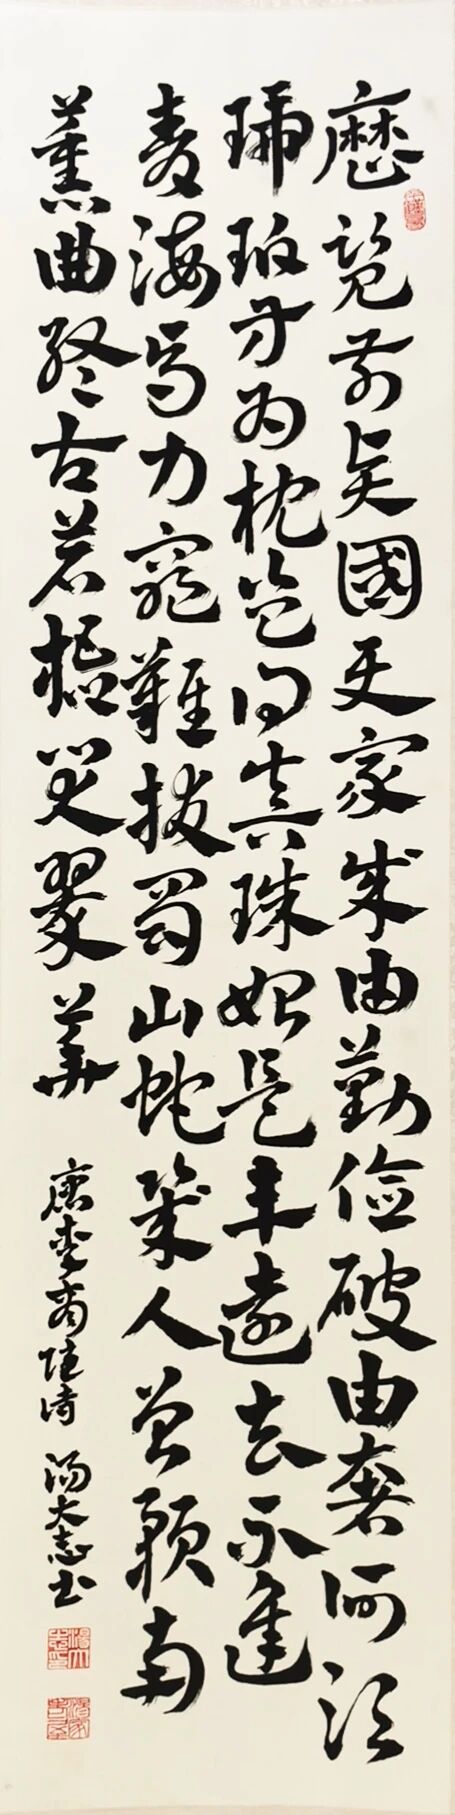 歷覽前賢國与家成由勤儉破由奢何須
琥珀方为枕豈得真珠始是車遠去不逢
青海馬力窮難拔蜀山蛇幾人曾預南
薰曲終古蒼梧哭翠華
唐李商隱詩 湯大志书